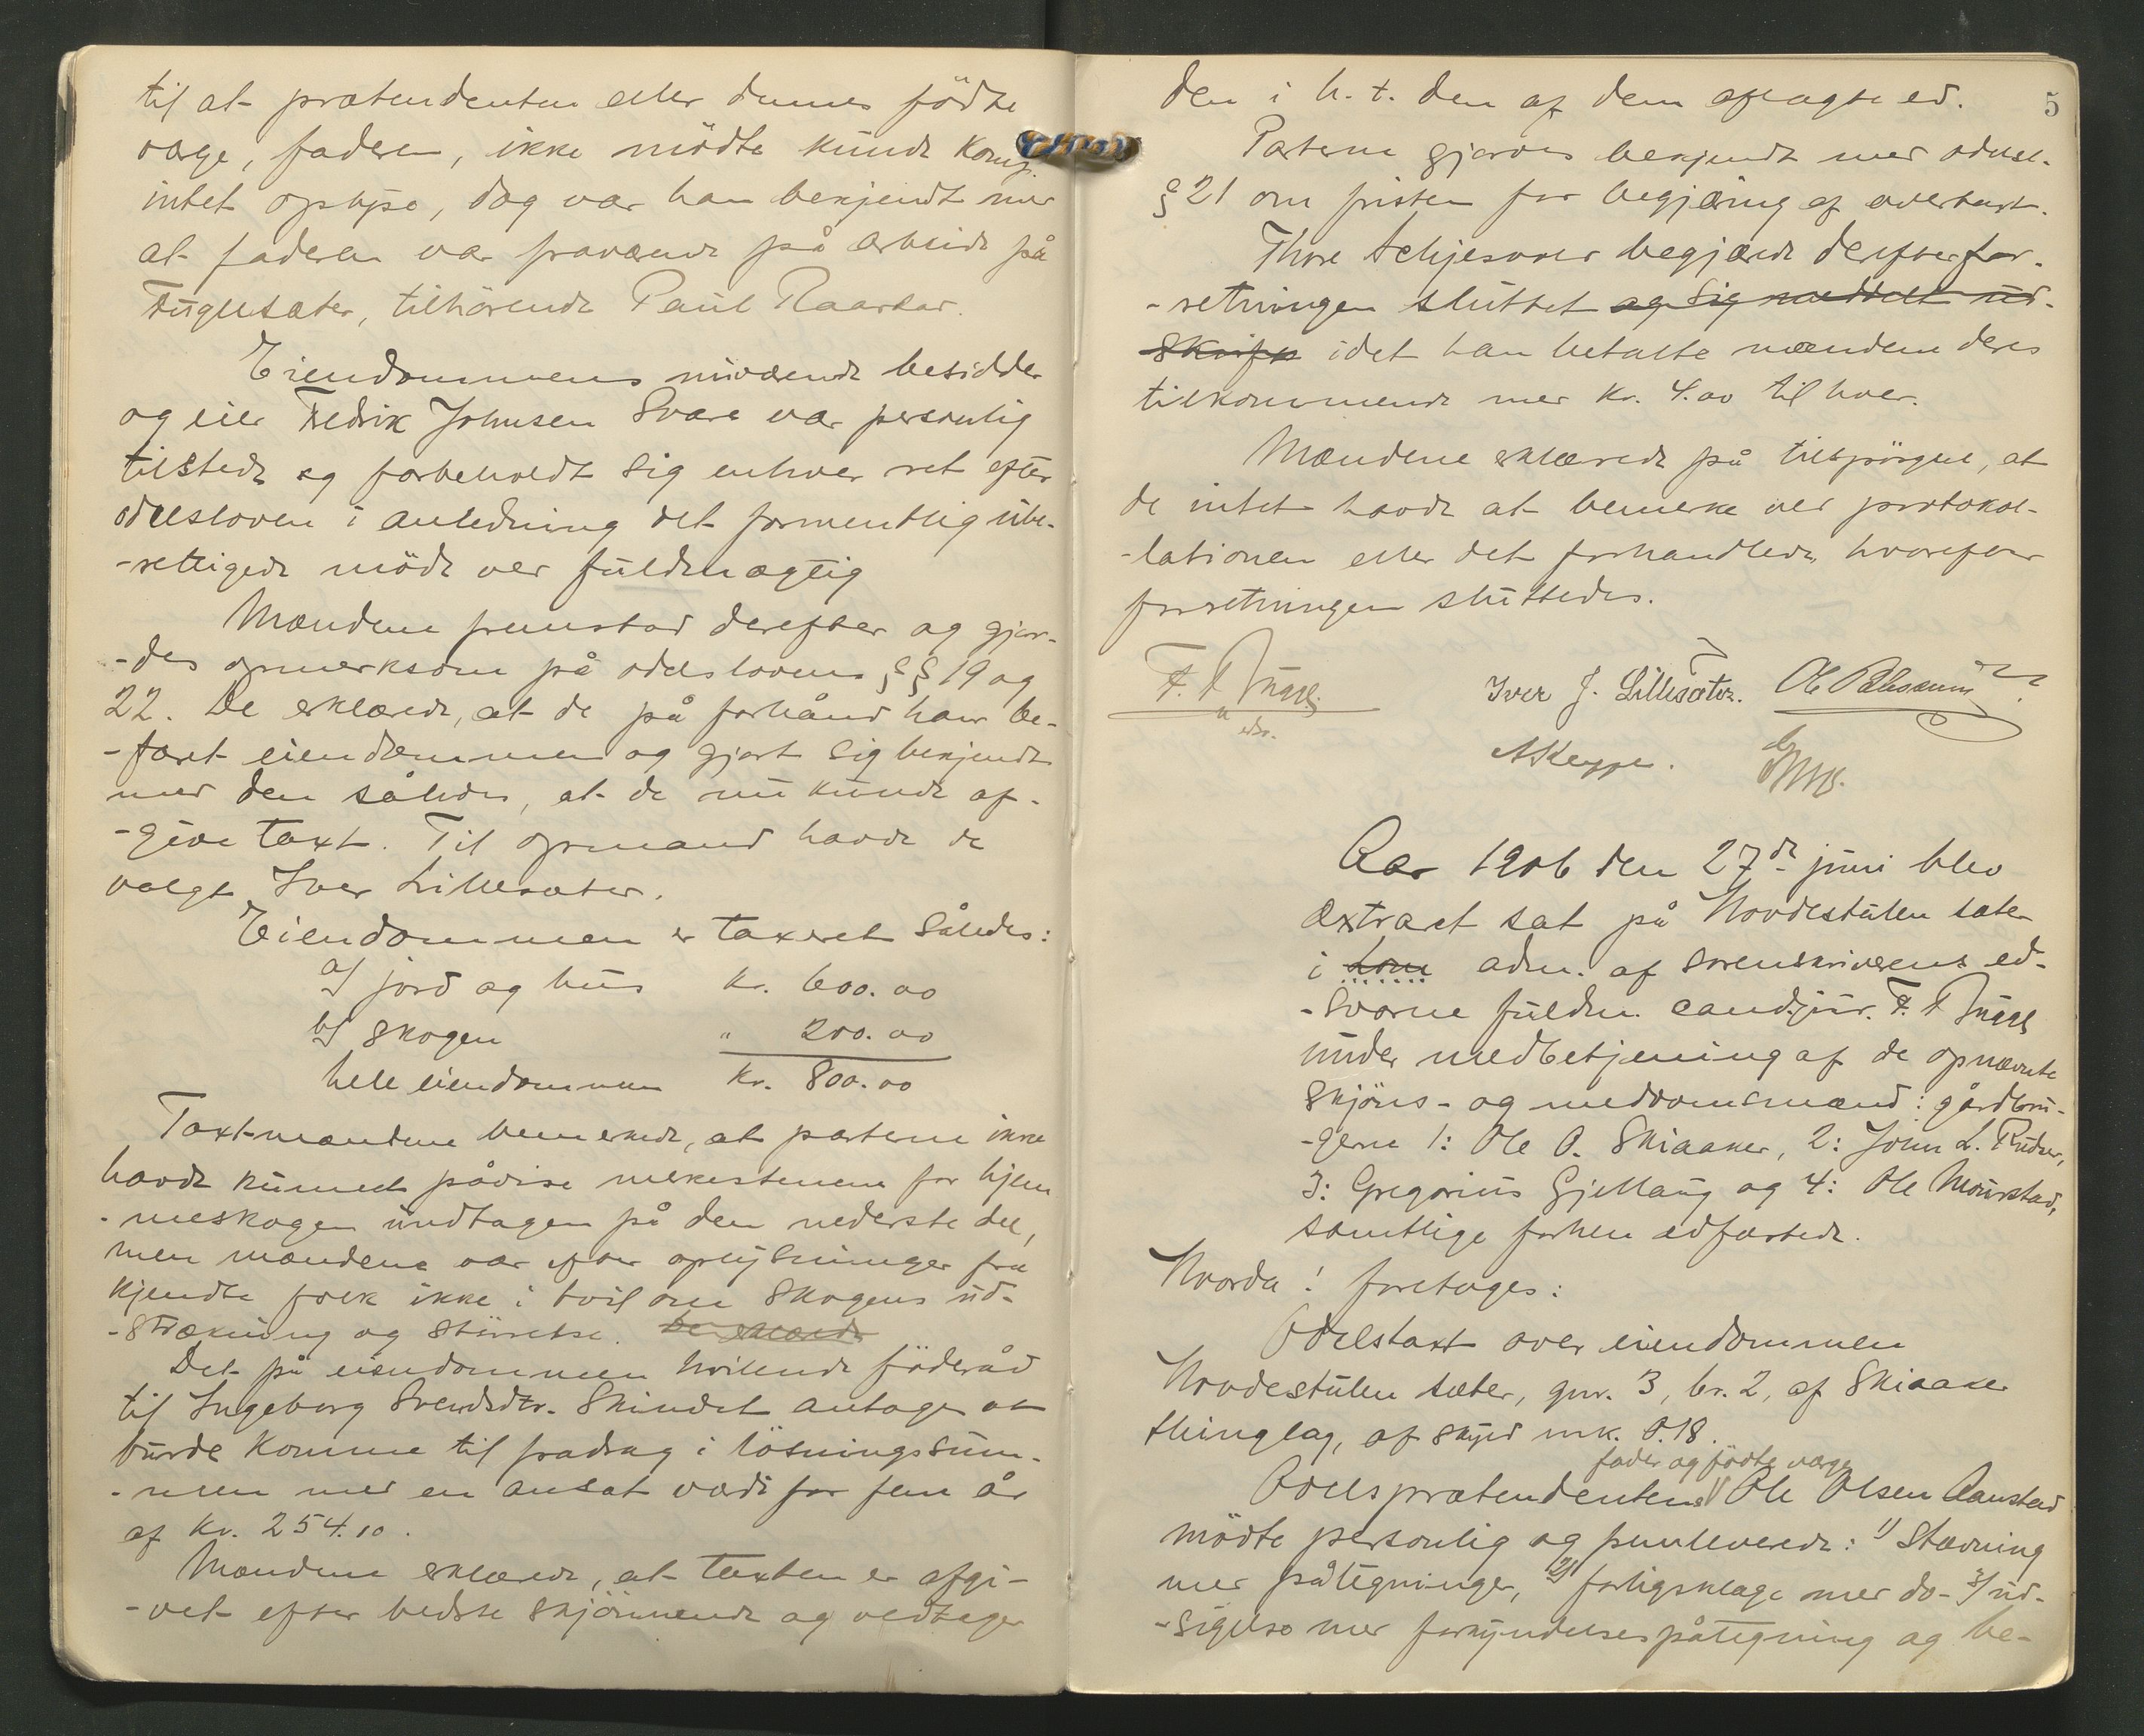 til at prætendenten eller dennes fødte
værge, faderen, ikke mödte kunde
intet oplyse, dog var han bekjendt med
at faderen var fraværende på arbeide på
Fuglesæter, tilhörende Paul Raastar.
Eiendommens nuværende besidder
og eier Fredrik Johnsen Svare var personlig
tilstede og forbeholdt sig enhver ret efter
odelsloven i anledning det formentlig ube-
-rettigede möde ved fuldmægtig
Mændene fremstod derefter og gjor-
-des opmerksom på odelslovens §§ 19 og
22. De erklærede, at de på forhånd har be-
-faret eiendommen og gjort sig bekjendt
med den således, at de nu kunde af-
-give taxt. Til opmand havde de
valgt Iver Lillesæter.
Eiendommen er taxeret således:
a/ jord og hus kr. 600.00
b/ skogen " 200.00
hele eiendommen kr. 800.00
Taxtmændene bemerkede, at parterne ikke
havde kunnet påvise merkestenene for hjem
-meskogen undtagen på den nederste del,
men mændene var efter oplysninger fra
kjendte folk ikke i tvil om skogens ud-
-strækning og störrelse. De erklærede
Det på eiendommen hvilende föderåd
til Ingeborg Svendsdtr. Skindet antoges at
burde komme til fradrag i lösningssum-
-men med en ansat værdi for fem år
af kr. 254.10.
Mændene erklærede, at taxten er afgi-
-vet efter bedste skjönnende og vedtager
5
den i h. t. den af dem aflagte ed.
Parterne gjordes bekjendt med odelsl.
§ 21 om fristen for begjæring af overtaxt.
Thore begjærede derefter for-
-retningen sluttet og sig meddelt ud-
skrift idet han betalte mændene deres
tilkommende med kr. 4.00 til hver.
Mændene erklærede på tilspörgsel, at
de intet havde at bemerke ved protokol-
-lationen eller det forhandlede, hvorefter
forretningen sluttedes.
Iver J. Lillesæter.
Aar 1906 den 27de juni blev
extraret sat på Hovdestulen sæter
i Lom adm. af sorenskriverens ed-
-svorne fuldm. cand.jur.
under medbetjening af de opnævnte
skjöns- og meddomsmænd: gårdbru-
-gerne 1: Ole O. Skiaaker, 2: John L.
3: Gregorius Gjellaug og 4: Ole Mourstad,
samtlige forhen edfæstede.
Hvorda! foretoges:
Odelstaxt over eiendommen
Hovdestulen sæter, gnr. 3, br. 2, af Skiaaker
thinglag, af skyld mk. 0.18.
fader og fødte værge
Odelsprætendentens Ole Olsen Aanstad
mödte personlig og fremleverede: 1/ Stævning
med påtegninger, 2/ forligsklage med do- 3/ ud-
-sigelse med forkyndelsespåtegning og be-